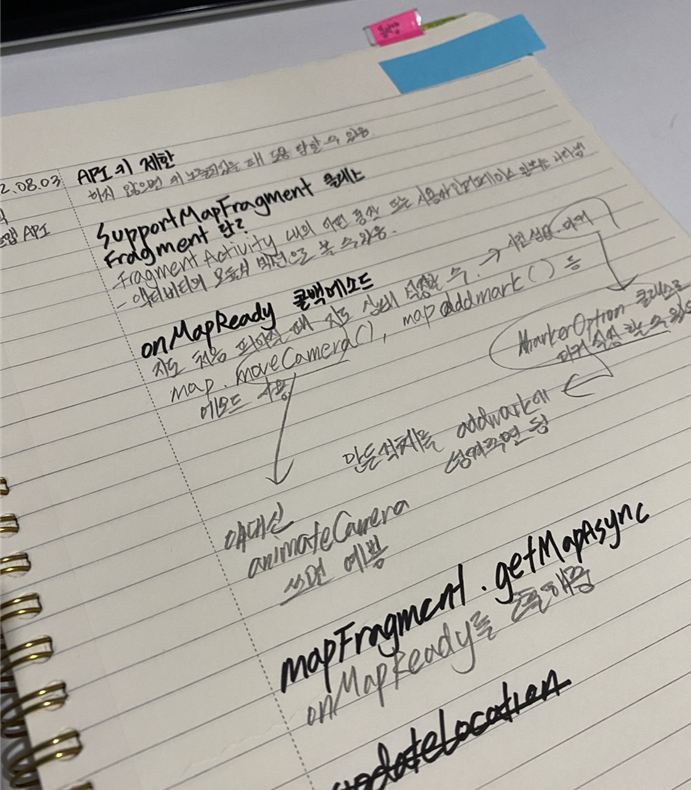 2.08.03
API 키 제한
하지 않으면 키 노출되었을 때 도용 당할 수 있음
맵 API
SupportMapFragment 클래스
Fragment 란?
- Fragment Activity 내의 어떤 동작 또는 사용자 인터페이스 일부를 나타냄
- 액티비티의 모듈식 섹션으로 볼 수 있음.
onMapReady 콜백메소드
지도 처음 띄워질 때 지도 상태 수
map.moveCamera(), map addmark() 등
메소드 사용
MarkerOption 클래스로
마커 수 있
만든 객체를 addmark에
넘겨주면 됨
얘대신
animateCamera
쓰면 예쁨
mapFragment.getMapAsync
onMapReady를 호출해줌
updateLocation